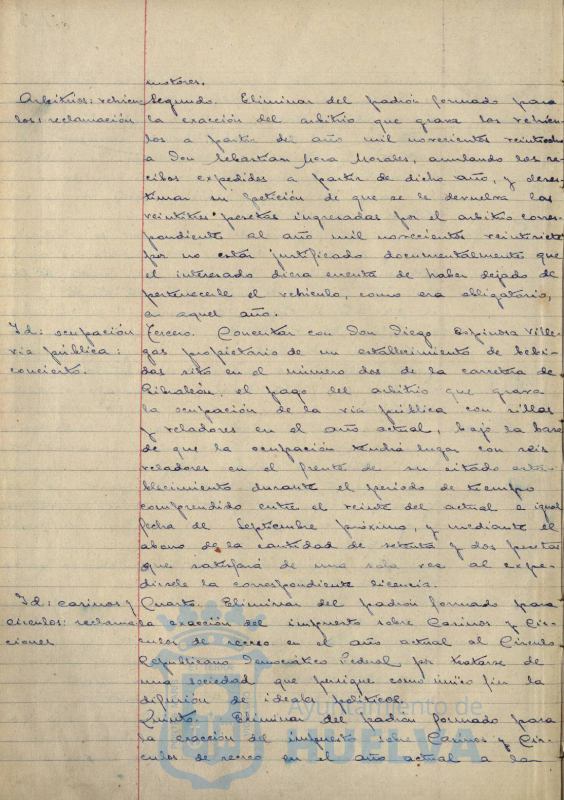 motores.
Arbitrios: vehícu- Segundo. Eliminar del padrón formado para
los: reclamación la exacción del arbitrio que grava los vehícu-
los a partir del año mil novecientos veintiocho
a Don Sebastian Mora Morales, anulando los re-
cibos expedidos a partir de dicho año, y deses-
timar su petición de que se le devuelva las
veintitres pesetas ingresadas por el arbitrio corres-
pondiente al año mil novecientos veintisiete
por no estar justificado documentalmente que
el interesado diera cuenta de haber dejado de
pertenecerle el vehículo, como era obligatorio,
en aquel año.
Id: ocupación Tercero. Concertar con Don Diego Espinosa Ville-
via pública: gas propietario de un establecimiento de bebi-
concierto. das sito en el número dos de la carretera de
Gibraleón, el pago del arbitrio que grava
la ocupación de la via pública con sillas
y veladores en el año actual, bajo la base
de que la ocupación tendrá lugar con seis
veladores en el frente de su citado esta-
blecimiento durante el periodo de tiempo
comprendido entre el veinte del actual e igual
fecha de Septiembre próximo, y mediante el
abono de la cantidad de setenta y dos pesetas
que satisfará de una sola vez al expe-
dirsele la correspondiente licencia.
Id: casinos y Cuarto. Eliminar del padrón formado para
circulos: reclama- la exacción del impuesto sobre Casinos y Cír-
ciones culos de recreo en el año actual al Círculo
Republicano Democrático Federal por tratarse de
una sociedad que persigue como único fin la
difusión de ideala políticos.
Quinto. Eliminar del padrón formado para
la exacción del impuesto sobre Casinos y Cír-
culos de recreo en el año actual a la
Ayuntamiento de
HUELVA